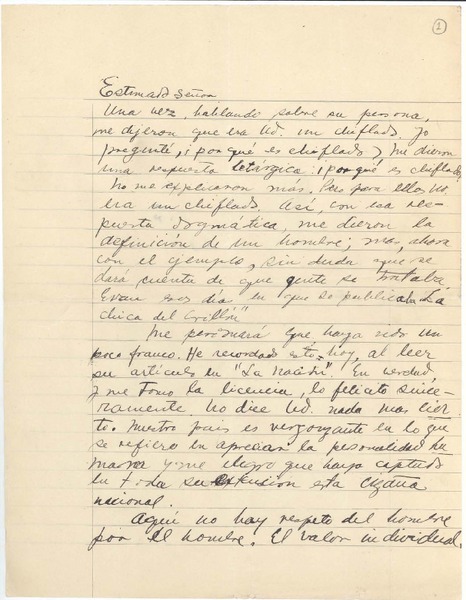 1
Estimado Señor
Una vez, hablando sobre su persona,
me dijeron que era Ud. un chiflado. Yo
pregunté, ¡por qué es chiflado? Me dieron
una respuesta ¡por qué es chiflado
No me explicaron mas. Pero para ellos Ud.
era un chiflado. Así, con esa res-
puesta dogmática, me dieron la
definición de un hombre; mas, ahora
con el ejemplo, sin duda que se
dará cuenta de que gente se trataba
Eran esos día en que se publicaba "La
chica del Crillón"
Me perdonará que haya sido un
poco franco. He recordado esto hoy, al leer
su artículo en "La Nación". En verdad,
y me tomo la licencia, lo felicito since-
ramente. No dice Ud. nada mas cier-
to. Nuestro país es vergonzante en lo que
se refiere en apreciar la personalidad hu-
mana y me alegro que haya captado
en toda su extensión esta cizaña
nacional.
Aquí no hay respeto del hombre
por el hombre. El valor individual,